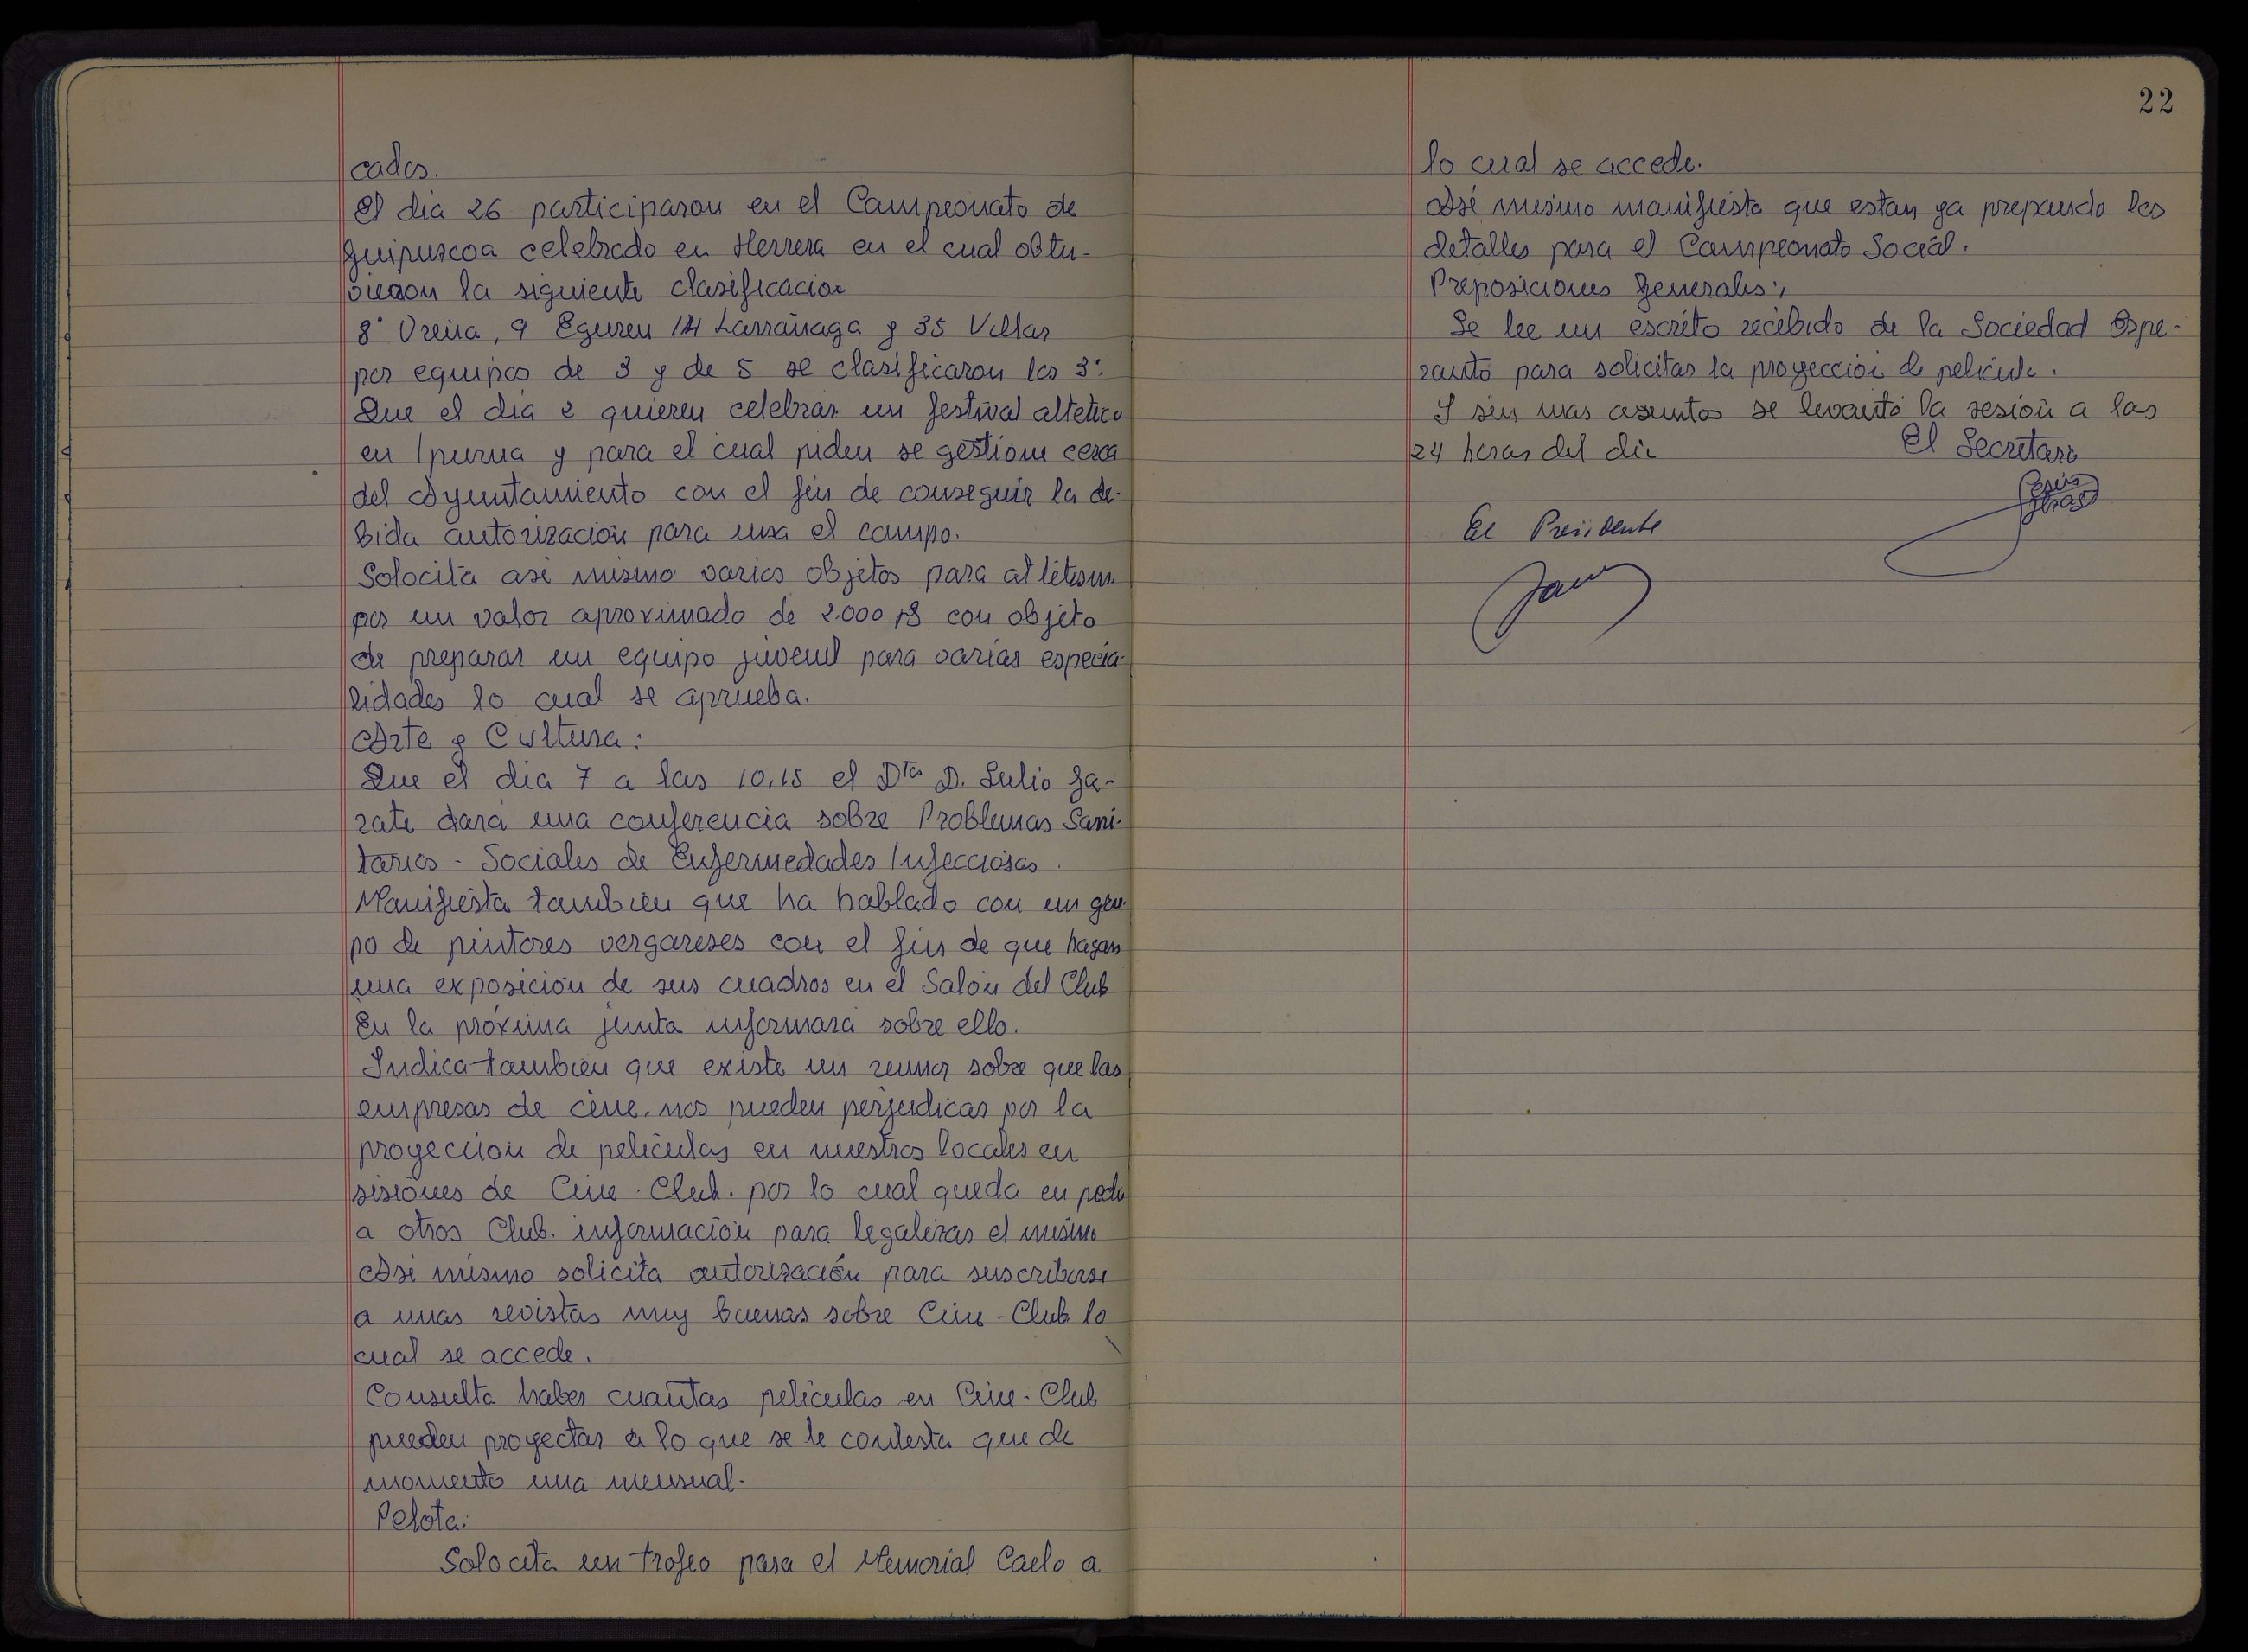 cados.
El dia 26 participaron en el Campeonato de
Guipuscoa celebrado en Herrera en el cual obtu-
vieron la siguiente clasificacion
8º Ureña, 9 Eguren 14 Larrañaga y 35 Villar
por equipos de 3 y de 5 se clasificaron los 3º.
Que el dia 2 quieren celebrar un festival altetico
en Ipurua y para el cual piden se gestione cerca
del Ayuntamiento con el fin de conseguir la de-
bida autorización para usa el campo.
Solocita asi mismo varios objetos para atletismo
por un valor aproximado de 2.000 pts con objeto
de preparar un equipo juvenil para varias especia-
lidades lo cual se aprueba.
Arte y Cultura:
Que el dia 7 a las 10,15 el Dtor D. Julio Ga-
rate dará una conferencia sobre Problemas Sani-
tarios - Sociales de Enfermedades Infecciosas.
Manifiesta tambien que ha hablado con un gru-
po de pintores vergareses con el fin de que hagan
una exposición de sus cuadros en el Salón del Club
En la próxima junta informará sobre ello.
Indica tambien que existe un rumor sobre que las
empresas de cine. nos pueden perjudicar por la
proyección de peliculas en nuestros locales en
sisiónes de Cine-Club. por lo cual queda en pedir
a otros Club. información para legalizar el mismo
Asi mismo solicita autorización para suscribirse
a unas revistas muy buenas sobre Cine-Club lo
cual se accede.
Consulta haber cuantas peliculas en Cine-Club
pueden proyectar a lo que se le contesta que de
momento una mensual.
Pelota:
Solocita un trofeo para el Memorial Caelo a
22
lo cual se accede.
Asi mismo manifiesta que estan ya preparando los
detalles para el Campeonato Social.
Preposiciones Generales:,
Se lee un escrito recibido de la Sociedad Espe-
ranto para solicitar la proyección de pelicula.
Y sin mas asuntos se levantó la sesión a las
24 horas del dia
El Secretario
El Presidente